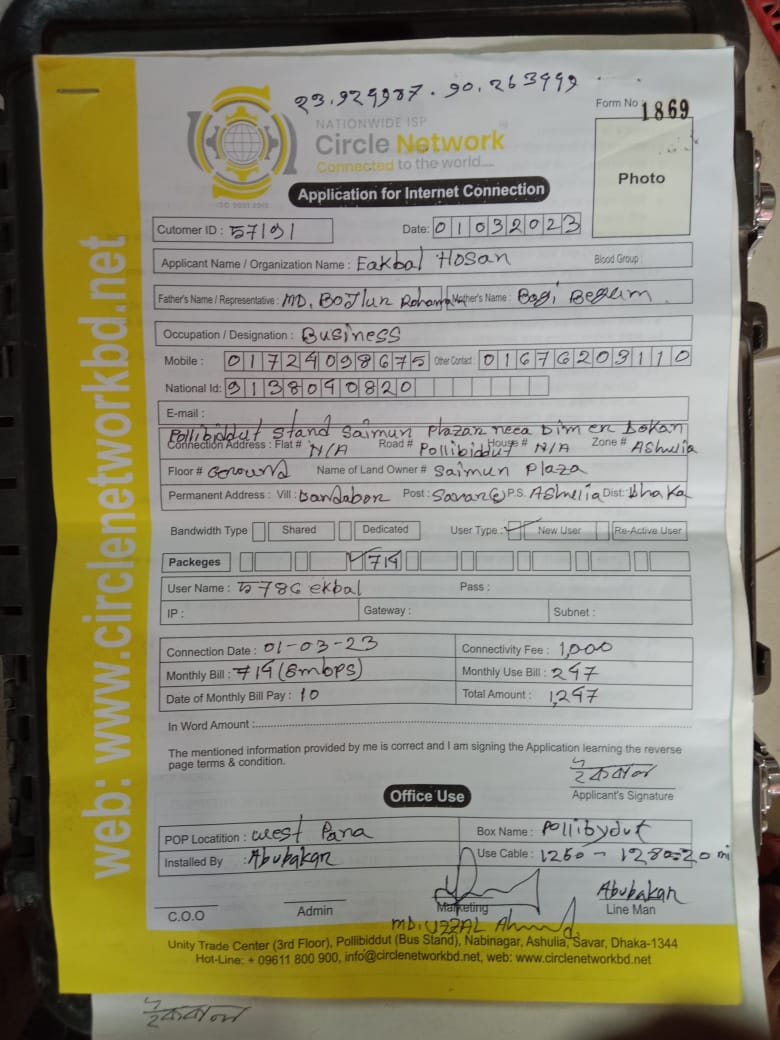 23.929987. 90.263999
Form No : 1869
NATIONWIDE ISP
Circle Network
Connected to the world....
ISO 9001:2015
Photo
Application for Internet Connection
Cutomer ID : 57191
Date: 01032023
Applicant Name / Organization Name : Eakbal Hosan Blood Group :
Father's Name / Representative : MD. Bojlur Rohaman Mother's Name : Bagi Begum
Occupation / Designation : Business
Mobile : 01724098675 Other Contact : 01676203110
National Id: 9138090820
E-mail :
Pollibiddut Stand Saimun Plazar neea Dimer Dokan
Connection Address : Flat # N/A Road # Pollibiddut House # N/A Zone # Ashulia
Floor # Goround Name of Land Owner # Saimun Plaza
Permanent Address : Vill : Dandabor Post : Savar P.S. Ashulia Dist: Dhaka
Bandwidth Type Shared Dedicated User Type : New User Re-Active User
Packeges 714
User Name : 5786 ekbal Pass :
IP : Gateway : Subnet :
Connection Date : 01-03-23 Connectivity Fee : 1,000
Monthly Bill : 714 (8mbps) Monthly Use Bill : 297
Date of Monthly Bill Pay : 10 Total Amount : 1,297
In Word Amount :
The mentioned information provided by me is correct and I am signing the Application learning the reverse
page terms & condition.
Applicant's Signature
Office Use
POP Locatition : West Para Box Name : Pollibydut
Installed By : Abubakar Use Cable : 1260 - 1280=20 mi
Abubakar
C.O.O Admin Marketing Line Man
MD. UZZAL Ahmed
Unity Trade Center (3rd Floor), Pollibiddut (Bus Stand), Nabinagar, Ashulia, Savar, Dhaka-1344
Hot-Line: + 09611 800 900, info@circlenetworkbd.net, web: www.circlenetworkbd.net
web: www.circlenetworkbd.net